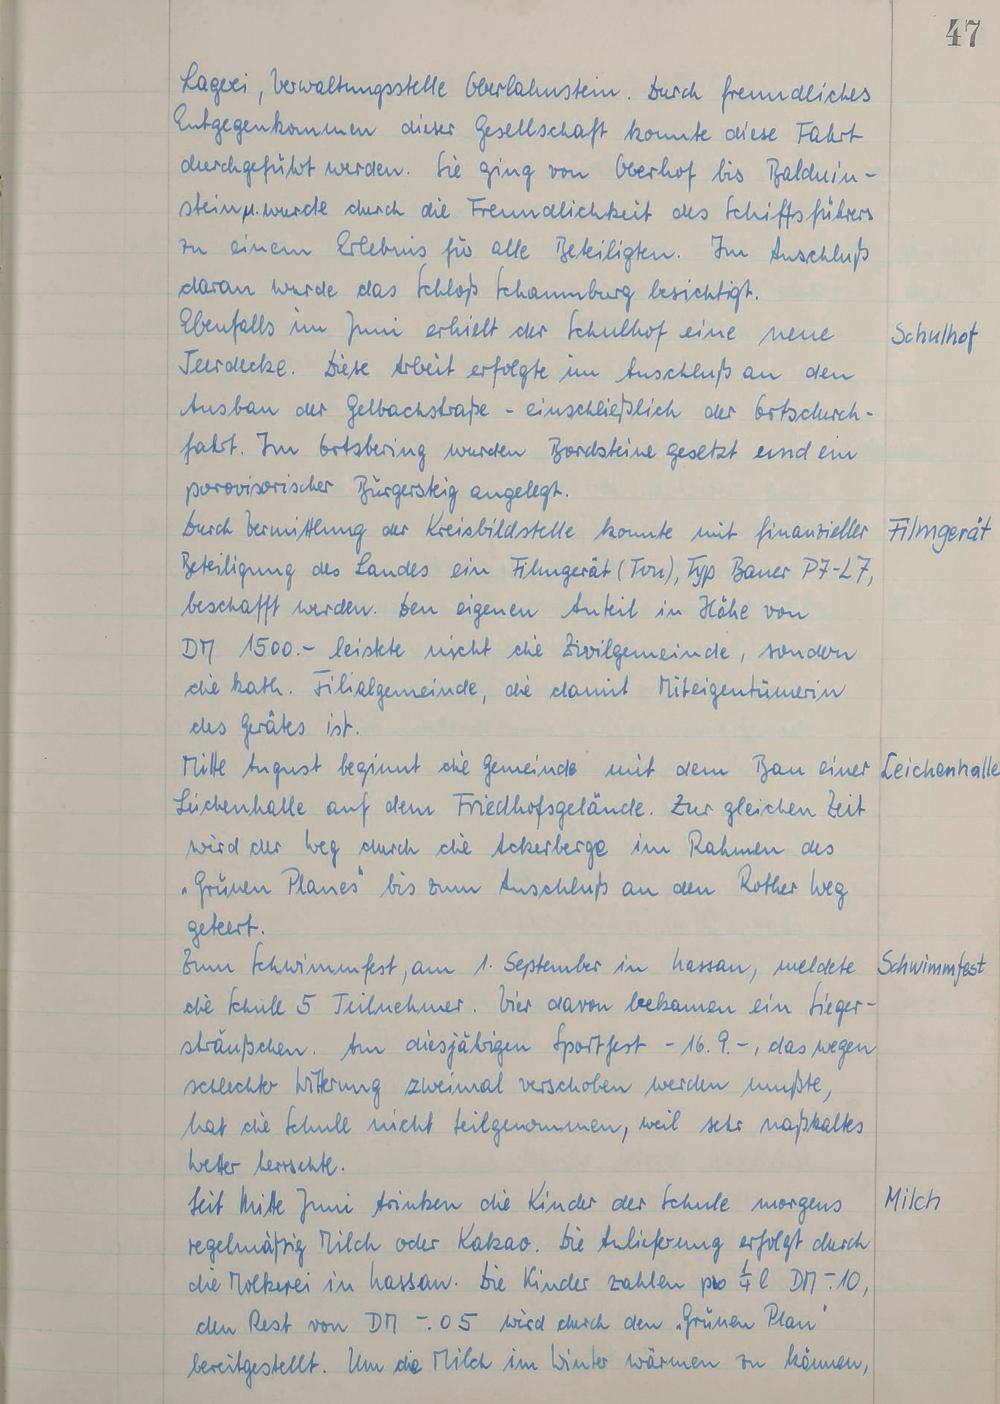 47
Lagerei, Verwaltungsstelle Oberlahnstein. Durch freundliches
Entgegenkommen dieser Gesellschaft konnte diese Fahrt
durchgeführt werden. Sie ging von Oberhof bis Balduin-
stein u. wurde durch die Freundlichkeit des Schiffsführers
zu einem Erlebnis für alle Beteiligten. Im Anschluß
daran wurde das Schloß Schaumburg besichtigt.
Ebenfalls im Juni erhielt der Schulhof eine neue
Schulhof
Teerdecke. Diese Arbeit erfolgte im Anschluß an den
Ausbau der Gelbachstraße - einschließlich der Ortsdurch-
fahrt. Im Ortsbering wurden Bordsteine gesetzt und ein
porovisorischer Bürgersteig angelegt.
Durch Vermittlung der Kreisbildstelle konnte mit finanzieller
Filmgerät
Beteiligung des Landes ein Filmgerät (Ton), Typ Bauer P7-L7,
beschafft werden. Den eigenen Anteil in Höhe von
DM 1500.- leistete nicht die Zivilgemeinde, sondern
die kath. Filialgemeinde, die damit Miteigentümerin
des Gerätes ist.
Mitte August beginnt die Gemeinde mit dem Bau einer
Leichenhalle
Leichenhalle auf dem Friedhofsgelände. Zur gleichen Zeit
wird der Weg durch die Ackerberge im Rahmen des
„Grünen Planes" bis zum Anschluß an den Rother Weg
geteert.
Zum Schwimmfest, am 1. September in Nassau, meldete
Schwimmfest
die Schule 5 Teilnehmer. Vier davon bekamen ein Sieger-
sträußchen. Am diesjährigen Sportfest - 16. 9. -, das wegen
schlechter Witterung zweimal verschoben werden mußte,
hat die Schule nicht teilgenommen, weil sehr naßkaltes
Wetter herrschte.
Seit Mitte Juni trinken die Kinder der Schule morgens
Milch
regelmäßig Milch oder Kakao. Die Anlieferung erfolgt durch
die Molkerei in Nassau. Die Kinder zahlen pro 1/4 l DM -.10,
den Rest von DM -.05 wird durch den „Grünen Plan"
bereitgestellt. Um die Milch im Winter wärmen zu können,